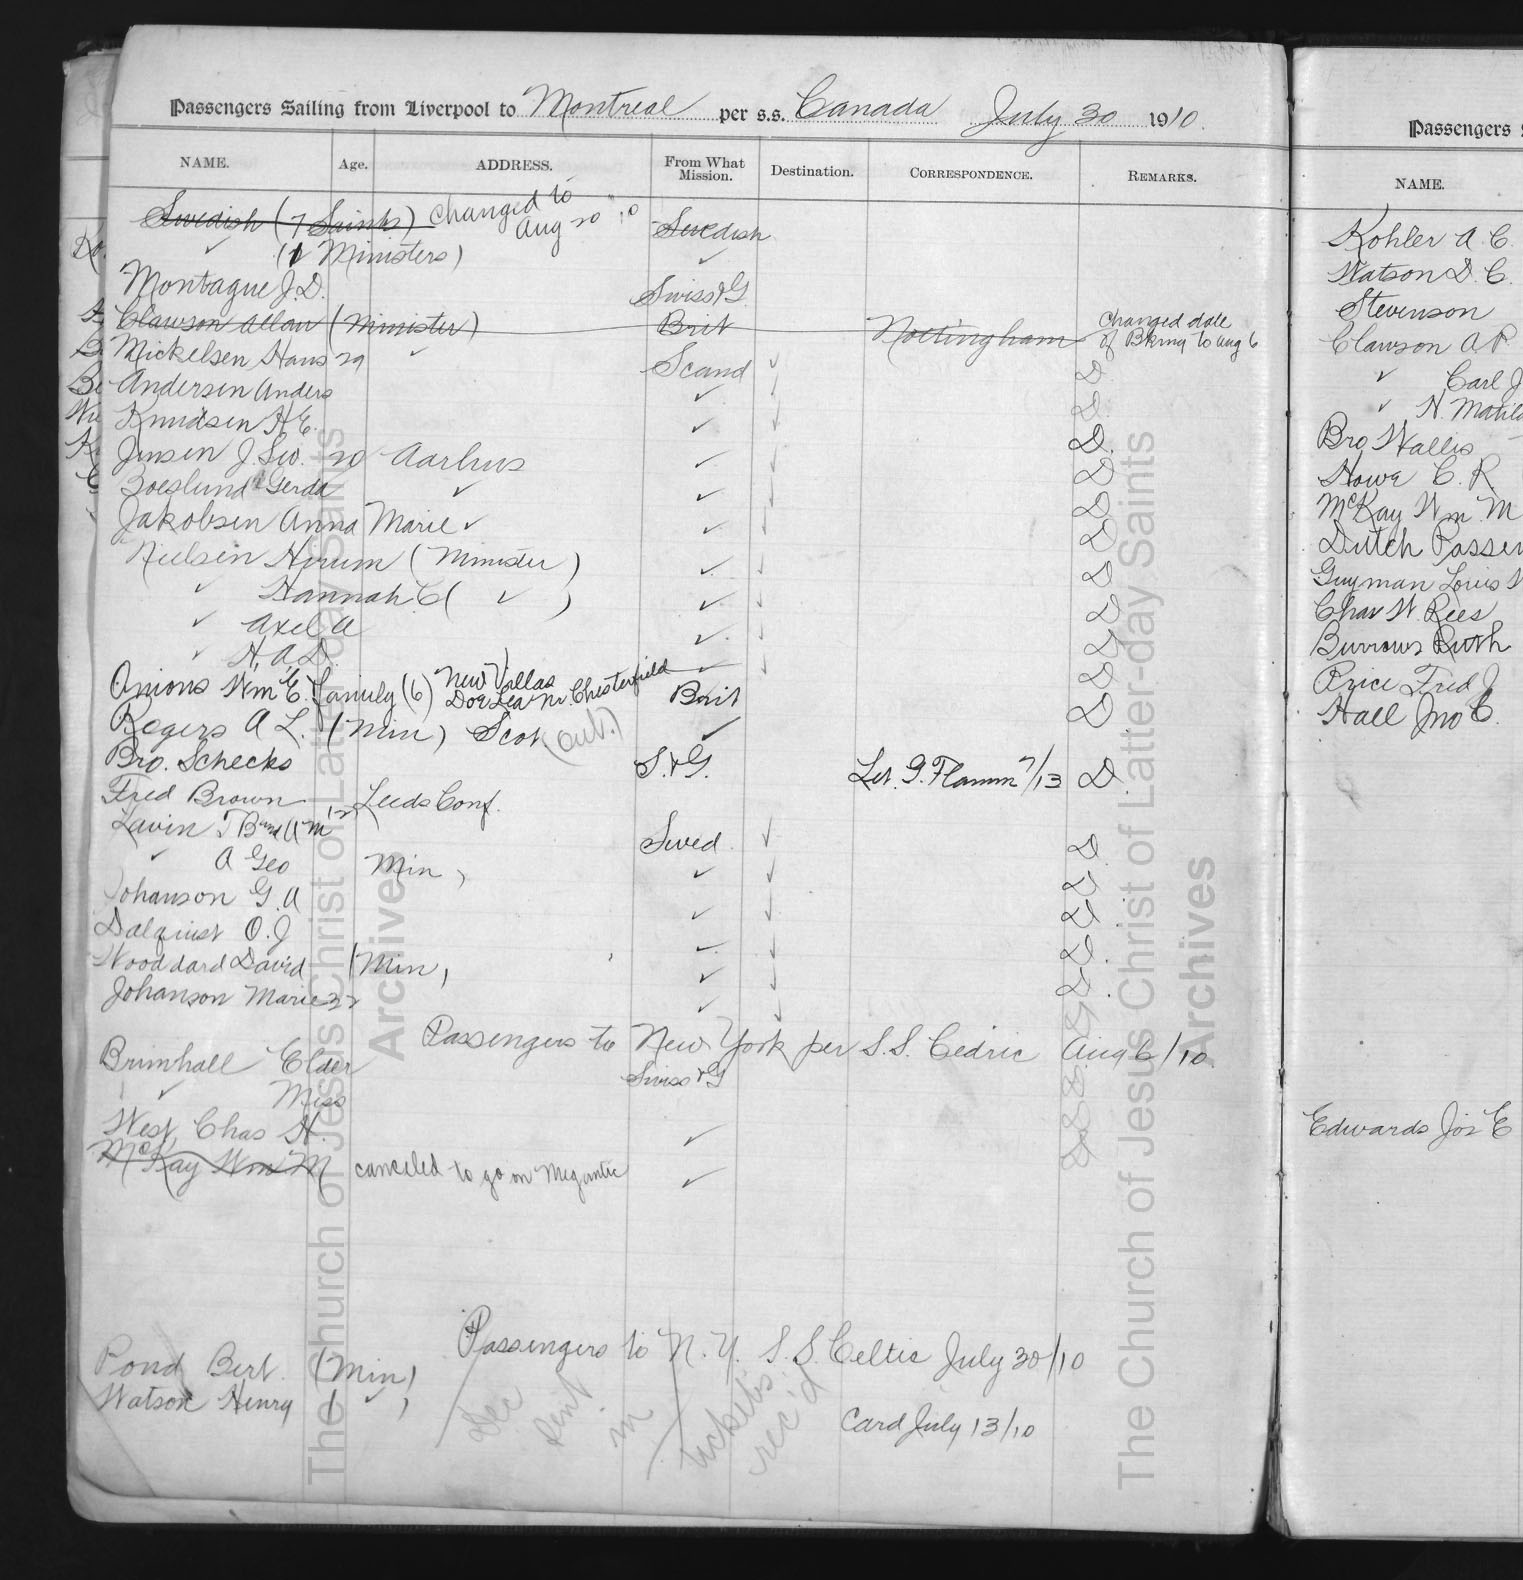 Passengers Sailing from Liverpool to Montreal per s.s. Canada July 30 1910.
NAME. Age. ADDRESS. From What Mission. Destination. CORRESPONDENCE. REMARKS.
Swedish (7 Saints) changed to Aug 20 "10 Swedish
✓ (1 Ministers) ✓
Montague J. D. Swiss & G.
Clawson Allan (Minister) Brit Nottingham changed date of Bking to Aug 6
Mickelsen Hans 29 ✓ Scand ✓ D
Andersen Anders ✓ ✓ D
Knudsen H. E. ✓ ✓ D.
Jensen J. Leo. 20 Aarhus ✓ ✓ D
Gerda ✓ ✓ ✓ D
Jakobsen Anna Marie ✓ ✓ ✓ D
Nielsen Hirum (Minister) ✓ ✓ D
✓ Hannah C ( ✓ ) ✓ ✓ D
✓ Axel A ✓ ✓ D
✓ H. A. D. ✓ ✓ D
Onions Wm E. family (6) New Villas Doe Lea Nr. Chesterfield Brit D
Rogers A L. (Min) Scot (Out.) ✓
Bro. Schecks S. & G. Let. G. Flamm 7/13 D.
Fred Brown Leeds Conf.
Lavin T Swed. ✓ D
✓ A Geo Min, ✓ ✓ D
Johanson G. A ✓ ✓ D
Dalquist O. J ✓ ✓ D
Wooddard David (Min, ✓ ✓ D.
Johanson Marie 32 ✓ ✓
Passengers to New York per S.S. Cedric Aug 6/10.
Brimhall Elder Swiss & G
✓ Miss
West, Chas H. ✓
McKay Wm M canceled to go on Megantic ✓
Passengers to N. Y. S.S. Celtic July 30/10
Pond Bert. (Min)
Watson Henry ( ✓ ) Card July 13/10
sent in tickets rec'd
Passengers
NAME.
Kohler A. C.
Watson D. C.
Stevenson
Clawson A R
✓ Carl J
✓ N. Matild
Bro Wallis
Howe C. R.
McKay Wm. M
Dutch Passen
Guyman Louis
Chas W. Rees
Burrows Ruth
Price Fred J
Hall Jno C.
Edwards Jos E
The Church of Jesus Christ of Latter-day Saints
Archives
The Church of Jesus Christ of Latter-day Saints
Archives